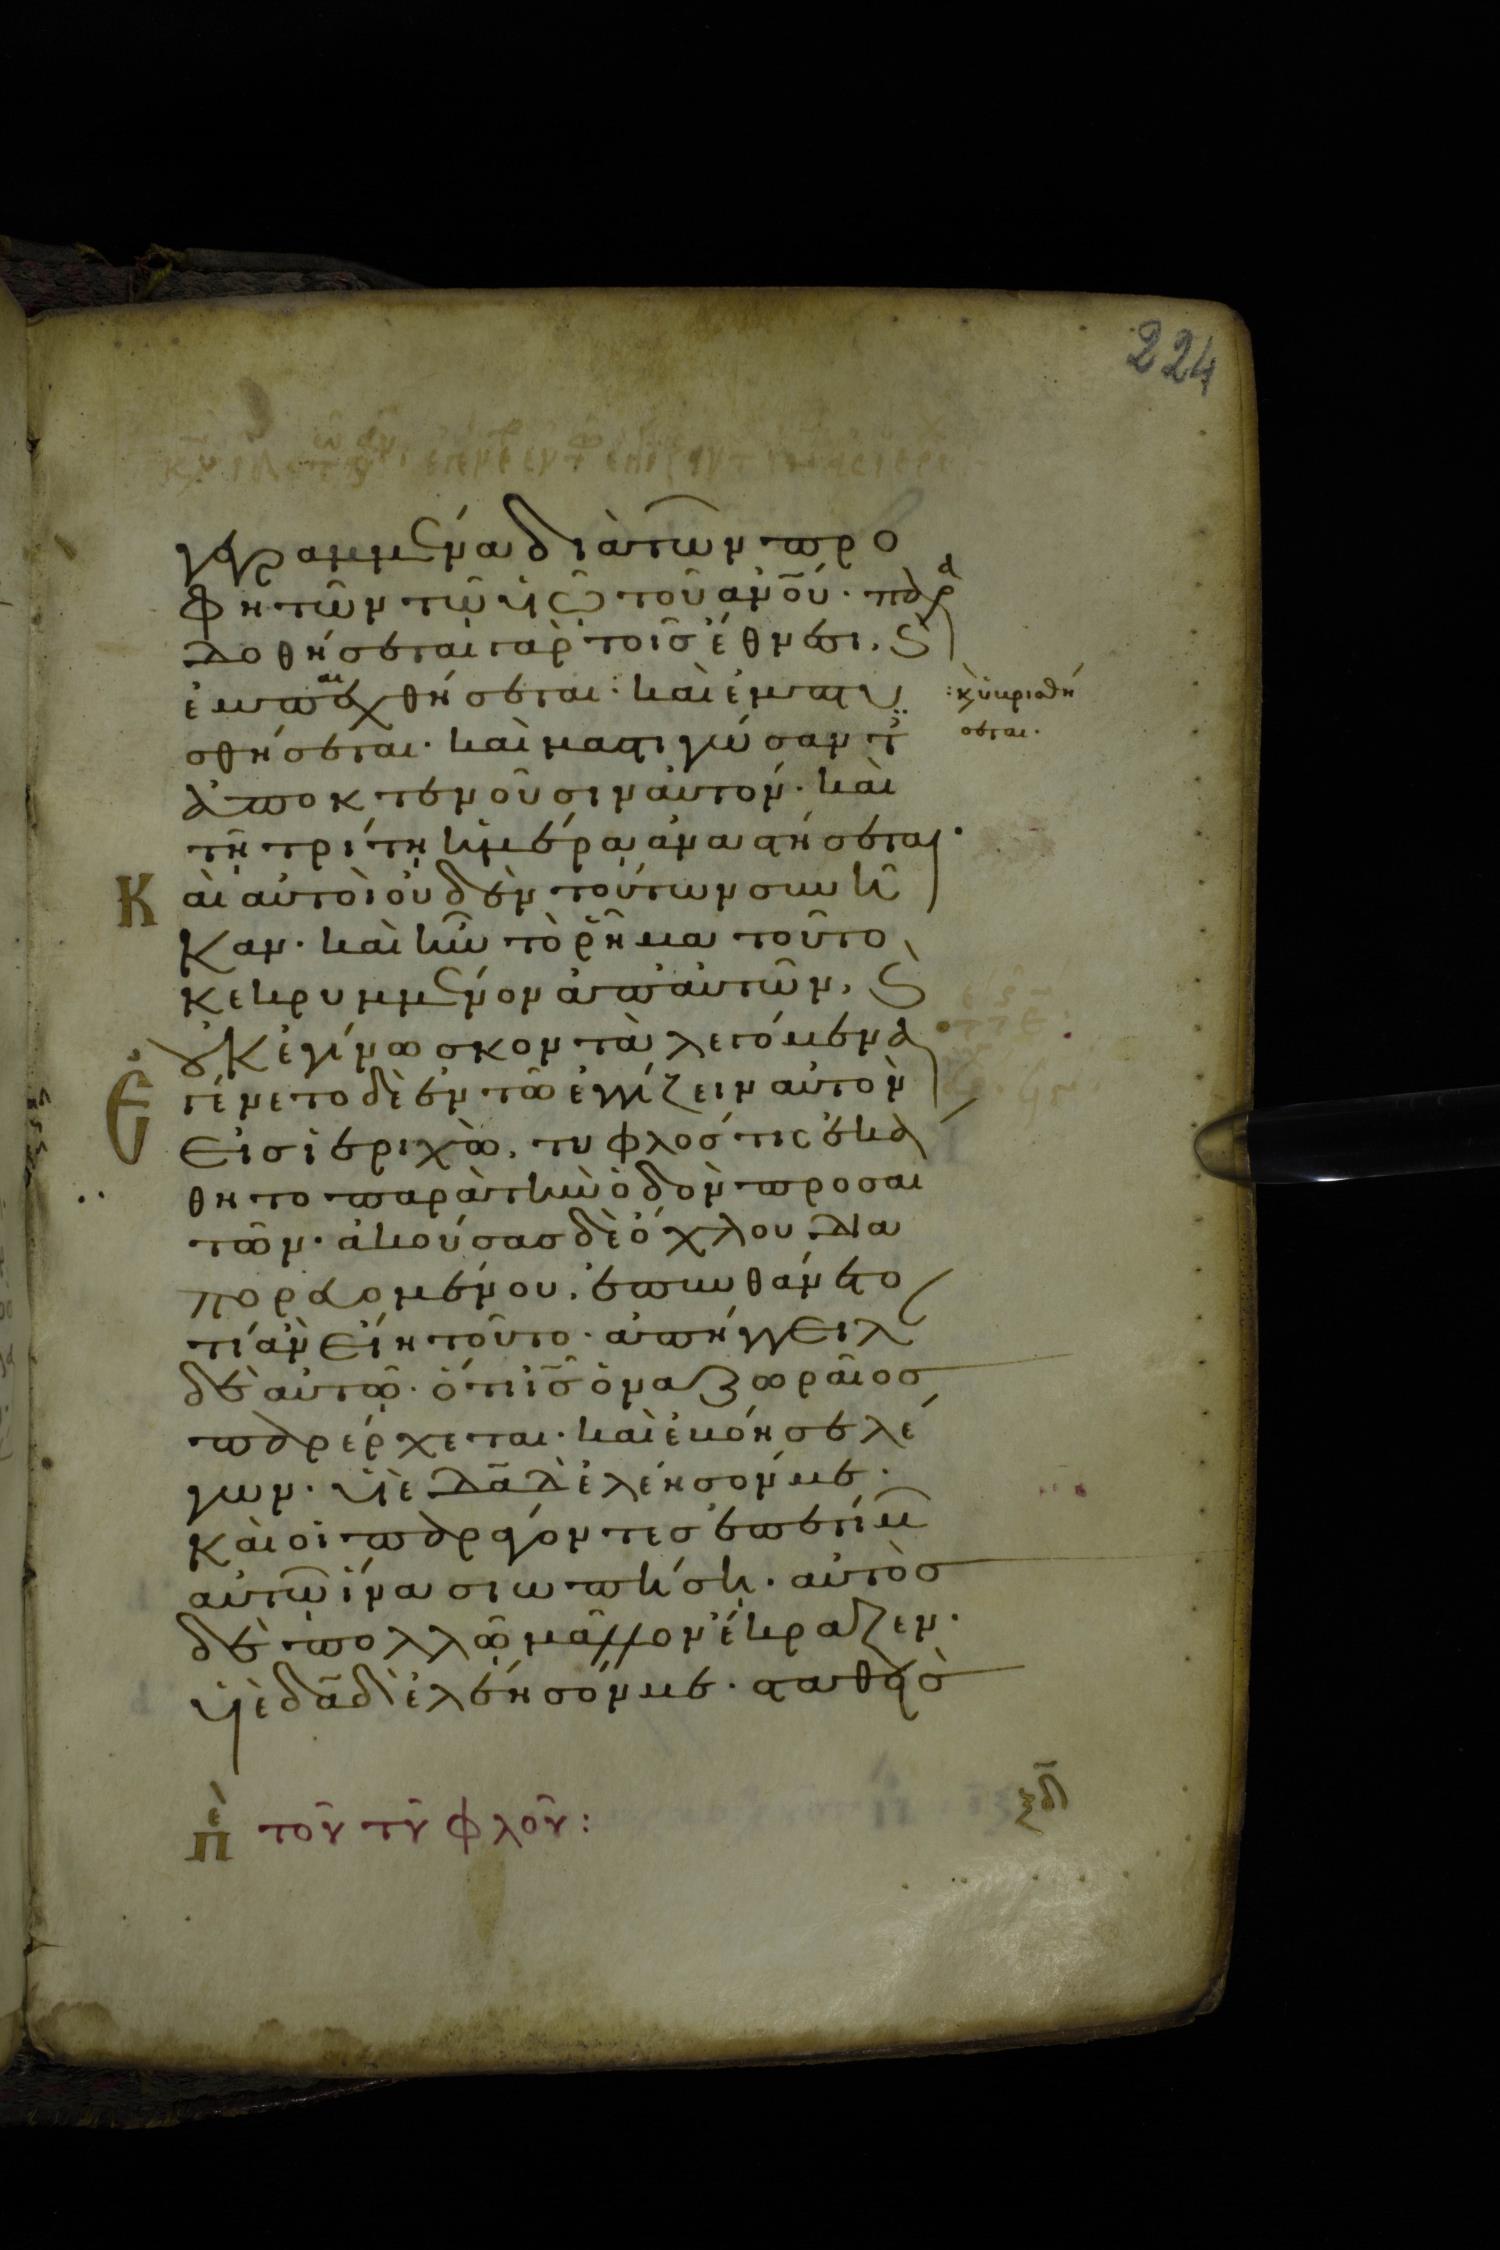 224
γεγραμμένα διὰ τῶν προ
φητῶν τῶ υἱῶ τοῦ ἀνοῦ· παρα
δοθήσεται γὰρ τοῖς ἔθνεσι, καὶ
ἐμπαιχθήσεται· καὶ ἐμπτυ
:κ̀ ὑβρισθή
σεται·
σθήσεται· καὶ μαστιγώσαντ
ἀποκτενοῦσιν αὐτόν· καὶ
τῆ τρίτη ἡμέρα ἀναστήσεται·
Καὶ αὐτοὶ οὐδὲν τούτων συνῆ
καν· καὶ ἦν τὸ ῥῆμα τοῦτο
κεκρυμμένον ἀπ' αὐτῶν, καὶ
οὐκ ἐγίνωσκον τὰ λεγόμενα
Ἐγένετο δὲ ἐν τῶ ἐγγίζειν αὐτὸν
εἰς ἱεριχὼ, τυφλός τις ἐκά
θητο παρὰ τὴν ὁδὸν προσαι
τῶν· ἀκούσας δὲ ὄχλου δια
πορευομένου, ἐπυνθάνετο
τί ἂν εἴη τοῦτο· ἀπήγγειλ
δὲ αὐτῶ· ὅτι ις ὁ ναζωραῖος
παρέρχεται· καὶ ἐβόησε λέ
γων· υἱὲ δαδ ἐλέησόν με·
καὶ οἱ παράγοντες ἐπετίμ
αὐτῶ ἵνα σιωπήση· αὐτὸς
δὲ πολλῶ μᾶλλον ἔκραζεν·
υἱὲ δαδ ἐλέησόν με· σταθεὶς
πε τοῦ τυφλοῦ:
ξδ